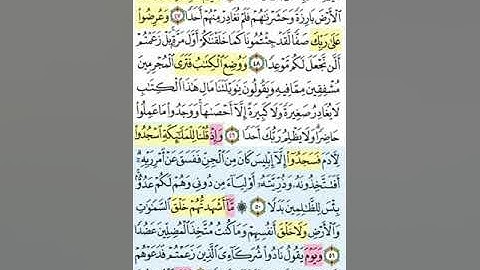 ٱلْأَرْضَ بَارِزَةً وَحَشَرْنَٰهُمْ فَلَمْ نُغَادِرْ مِنْهُمْ أَحَدًا ٤٧ وَعُرِضُوا۟
عَلَىٰ رَبِّكَ صَفًّا لَّقَدْ جِئْتُمُونَا كَمَا خَلَقْنَٰكُمْ أَوَّلَ مَرَّةٍۭ بَلْ زَعَمْتُمْ
أَلَّن نَّجْعَلَ لَكُم مَّوْعِدًا ٤٨ وَوُضِعَ ٱلْكِتَٰبُ فَتَرَى ٱلْمُجْرِمِينَ
مُشْفِقِينَ مِمَّا فِيهِ وَيَقُولُونَ يَٰوَيْلَتَنَا مَالِ هَٰذَا ٱلْكِتَٰبِ
لَا يُغَادِرُ صَغِيرَةً وَلَا كَبِيرَةً إِلَّآ أَحْصَىٰهَا ۚ وَوَجَدُوا۟ مَا عَمِلُوا۟
حَاضِرًا ۗ وَلَا يَظْلِمُ رَبُّكَ أَحَدًا ٤٩ وَإِذْ قُلْنَا لِلْمَلَٰٓئِكَةِ ٱسْجُدُوا۟
لِءَادَمَ فَسَجَدُوٓا۟ إِلَّآ إِبْلِيسَ كَانَ مِنَ ٱلْجِنِّ فَفَسَقَ عَنْ أَمْرِ رَبِّهِۦٓ ۗ
أَفَتَتَّخِذُونَهُۥ وَذُرِّيَّتَهُۥٓ أَوْلِيَآءَ مِن دُونِى وَهُمْ لَكُمْ عَدُوٌّۢ ۚ
بِئْسَ لِلظَّٰلِمِينَ بَدَلًا ٥٠ ۞ مَّآ أَشْهَدتُّهُمْ خَلْقَ ٱلسَّمَٰوَٰتِ
وَٱلْأَرْضِ وَلَا خَلْقَ أَنفُسِهِمْ وَمَا كُنتُ مُتَّخِذَ ٱلْمُضِلِّينَ عَضُدًا
٥١ وَيَوْمَ يَقُولُ نَادُوا۟ شُرَكَآءِىَ ٱلَّذِينَ زَعَمْتُمْ فَدَعَوْهُمْ